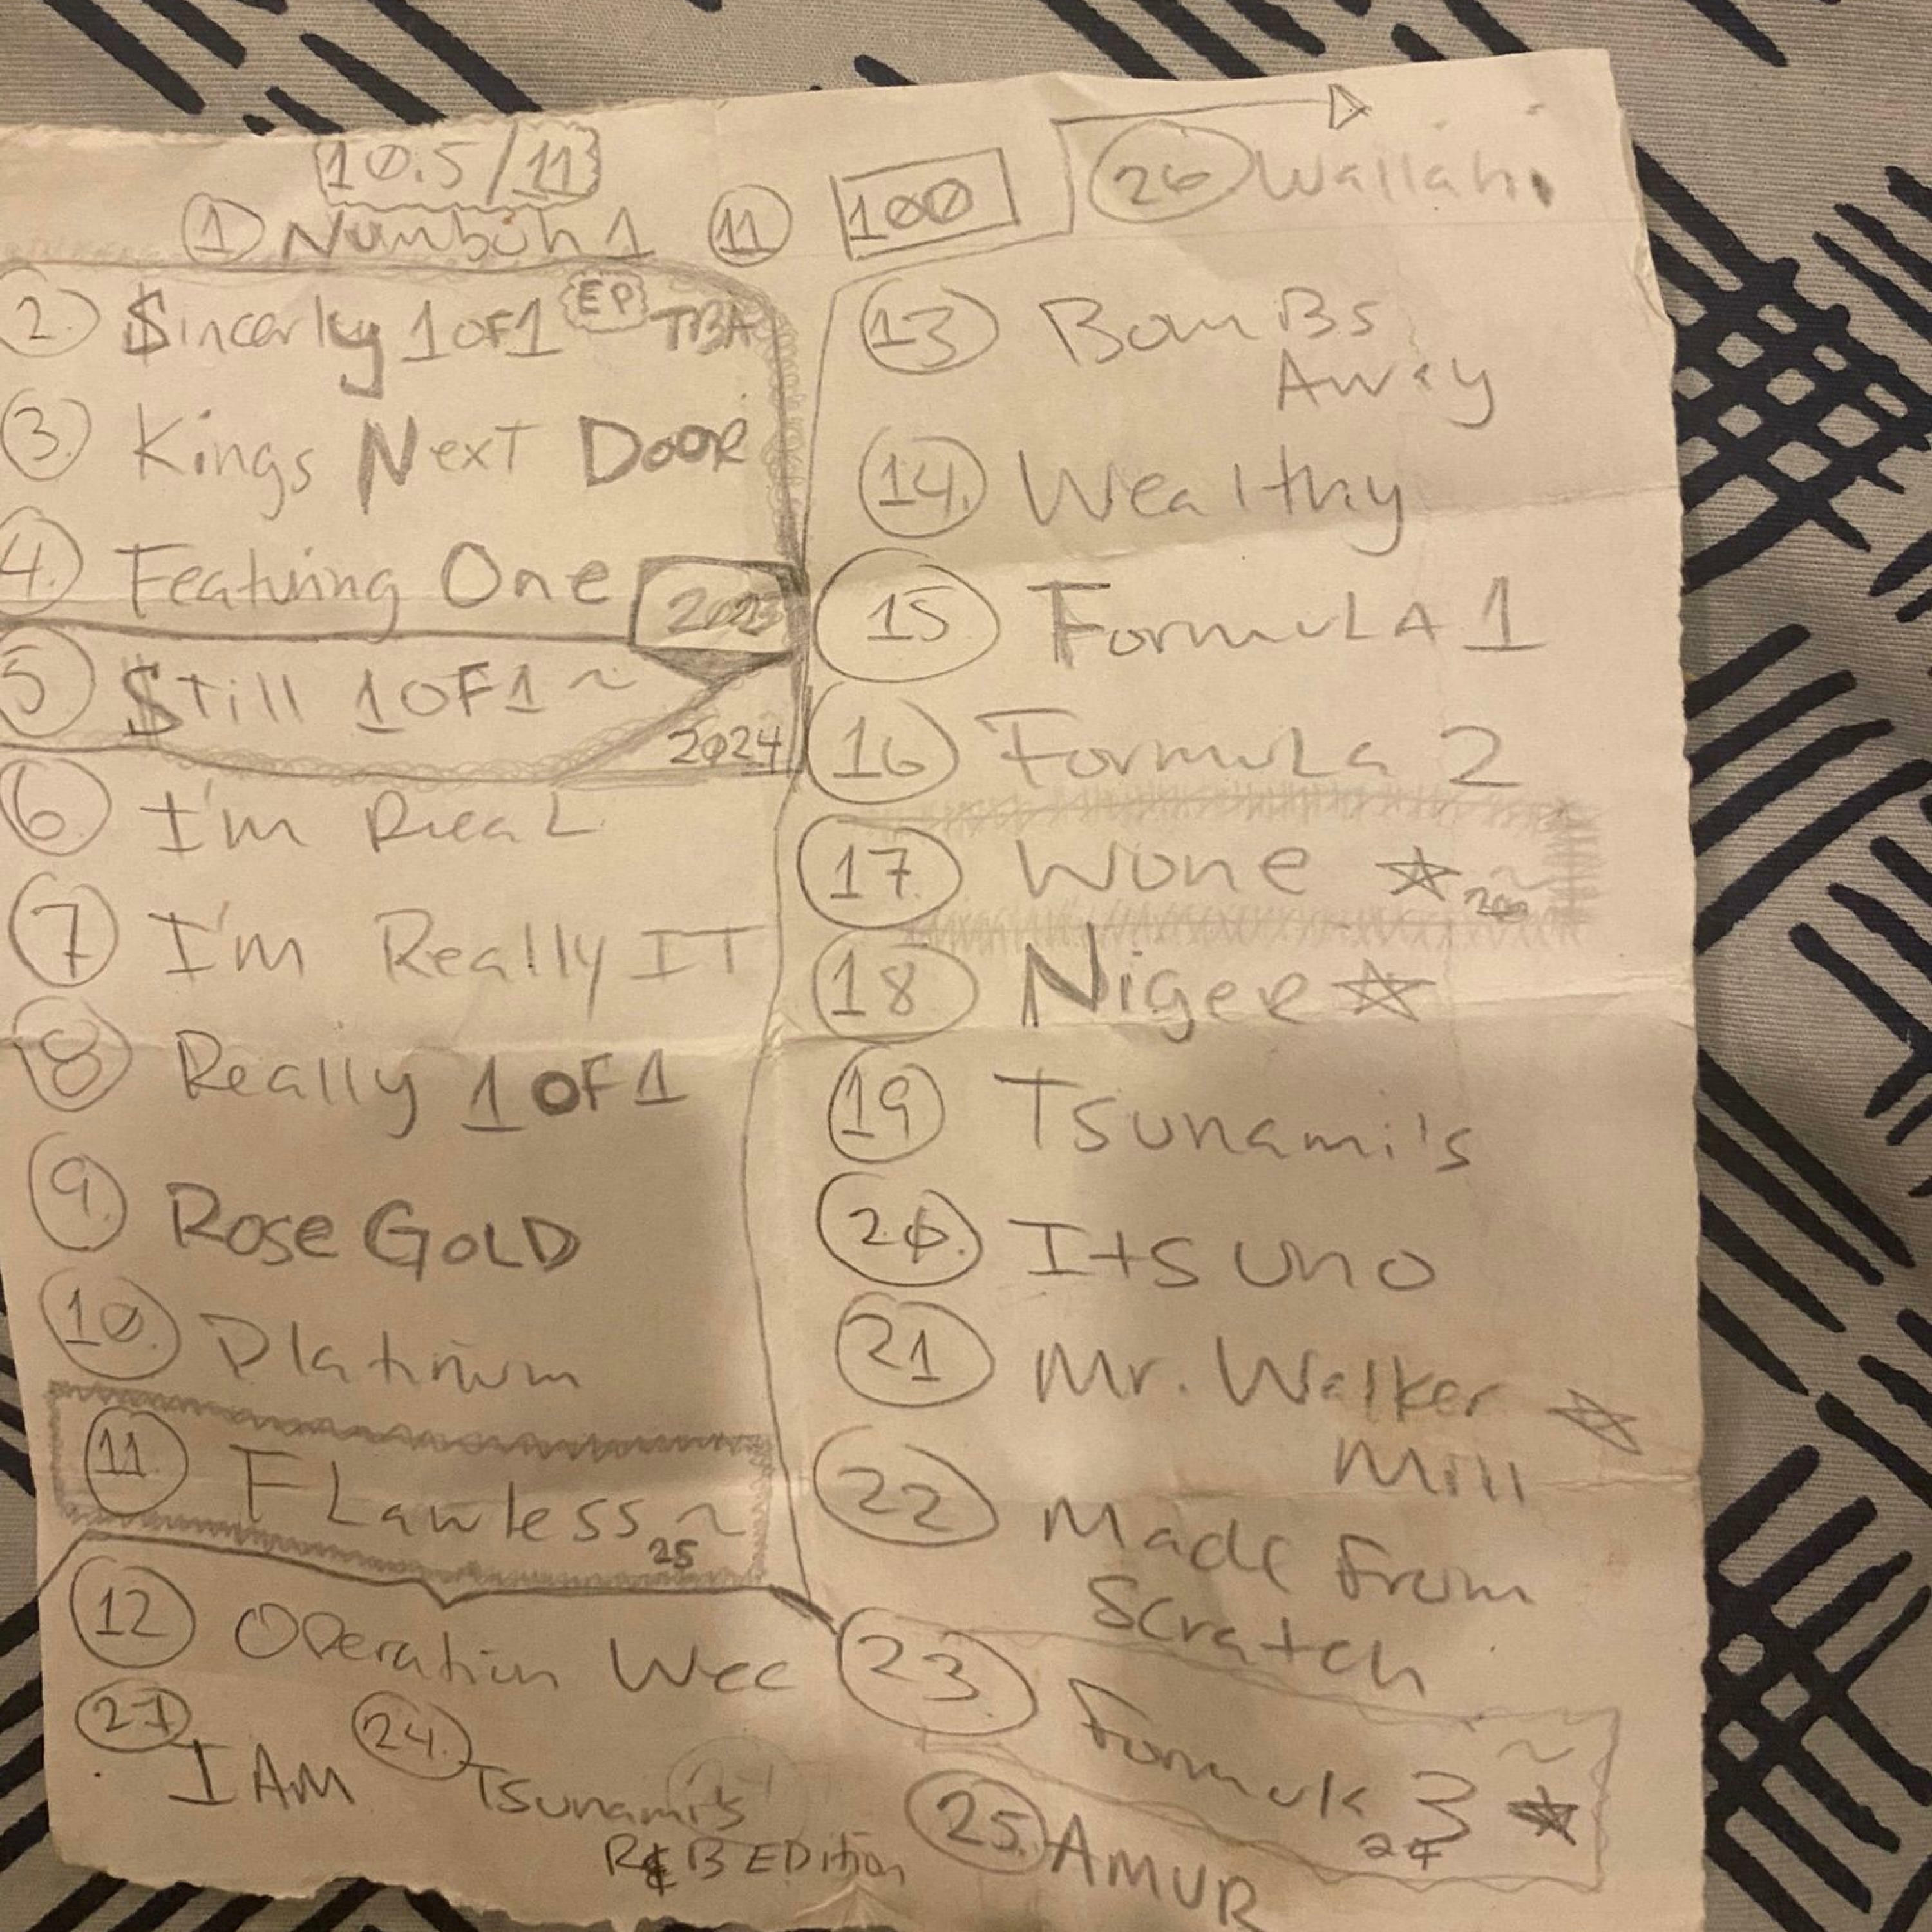 10.5/11
① Numbuh 1
2. $incerlyy 1 OF 1 EP TBA
3. Kings Next Door
4. Featuring One 2023
5 $till 1 OF 1 ~
2024
6 I'm Real
7 I'm Really IT
8 Really 1 OF 1
9. Rose GOLD
10. Platinum
11. FLawless ~
25
12 Operation Wec
27 I AM
24. Tsunami's
R&B EDition
11 100
26 Wallahi
13 BomBs
Away
14. Wealthy
15 FormuLA 1
16 FormuLa 2
17. Wone ☆ ~
18 Niger ☆
19 Tsunami's
20. Its uno
21 Mr. Walker ☆
Mill
22 Made From
Scratch
23. Formula 3 ~ ☆
24
25. AMUR